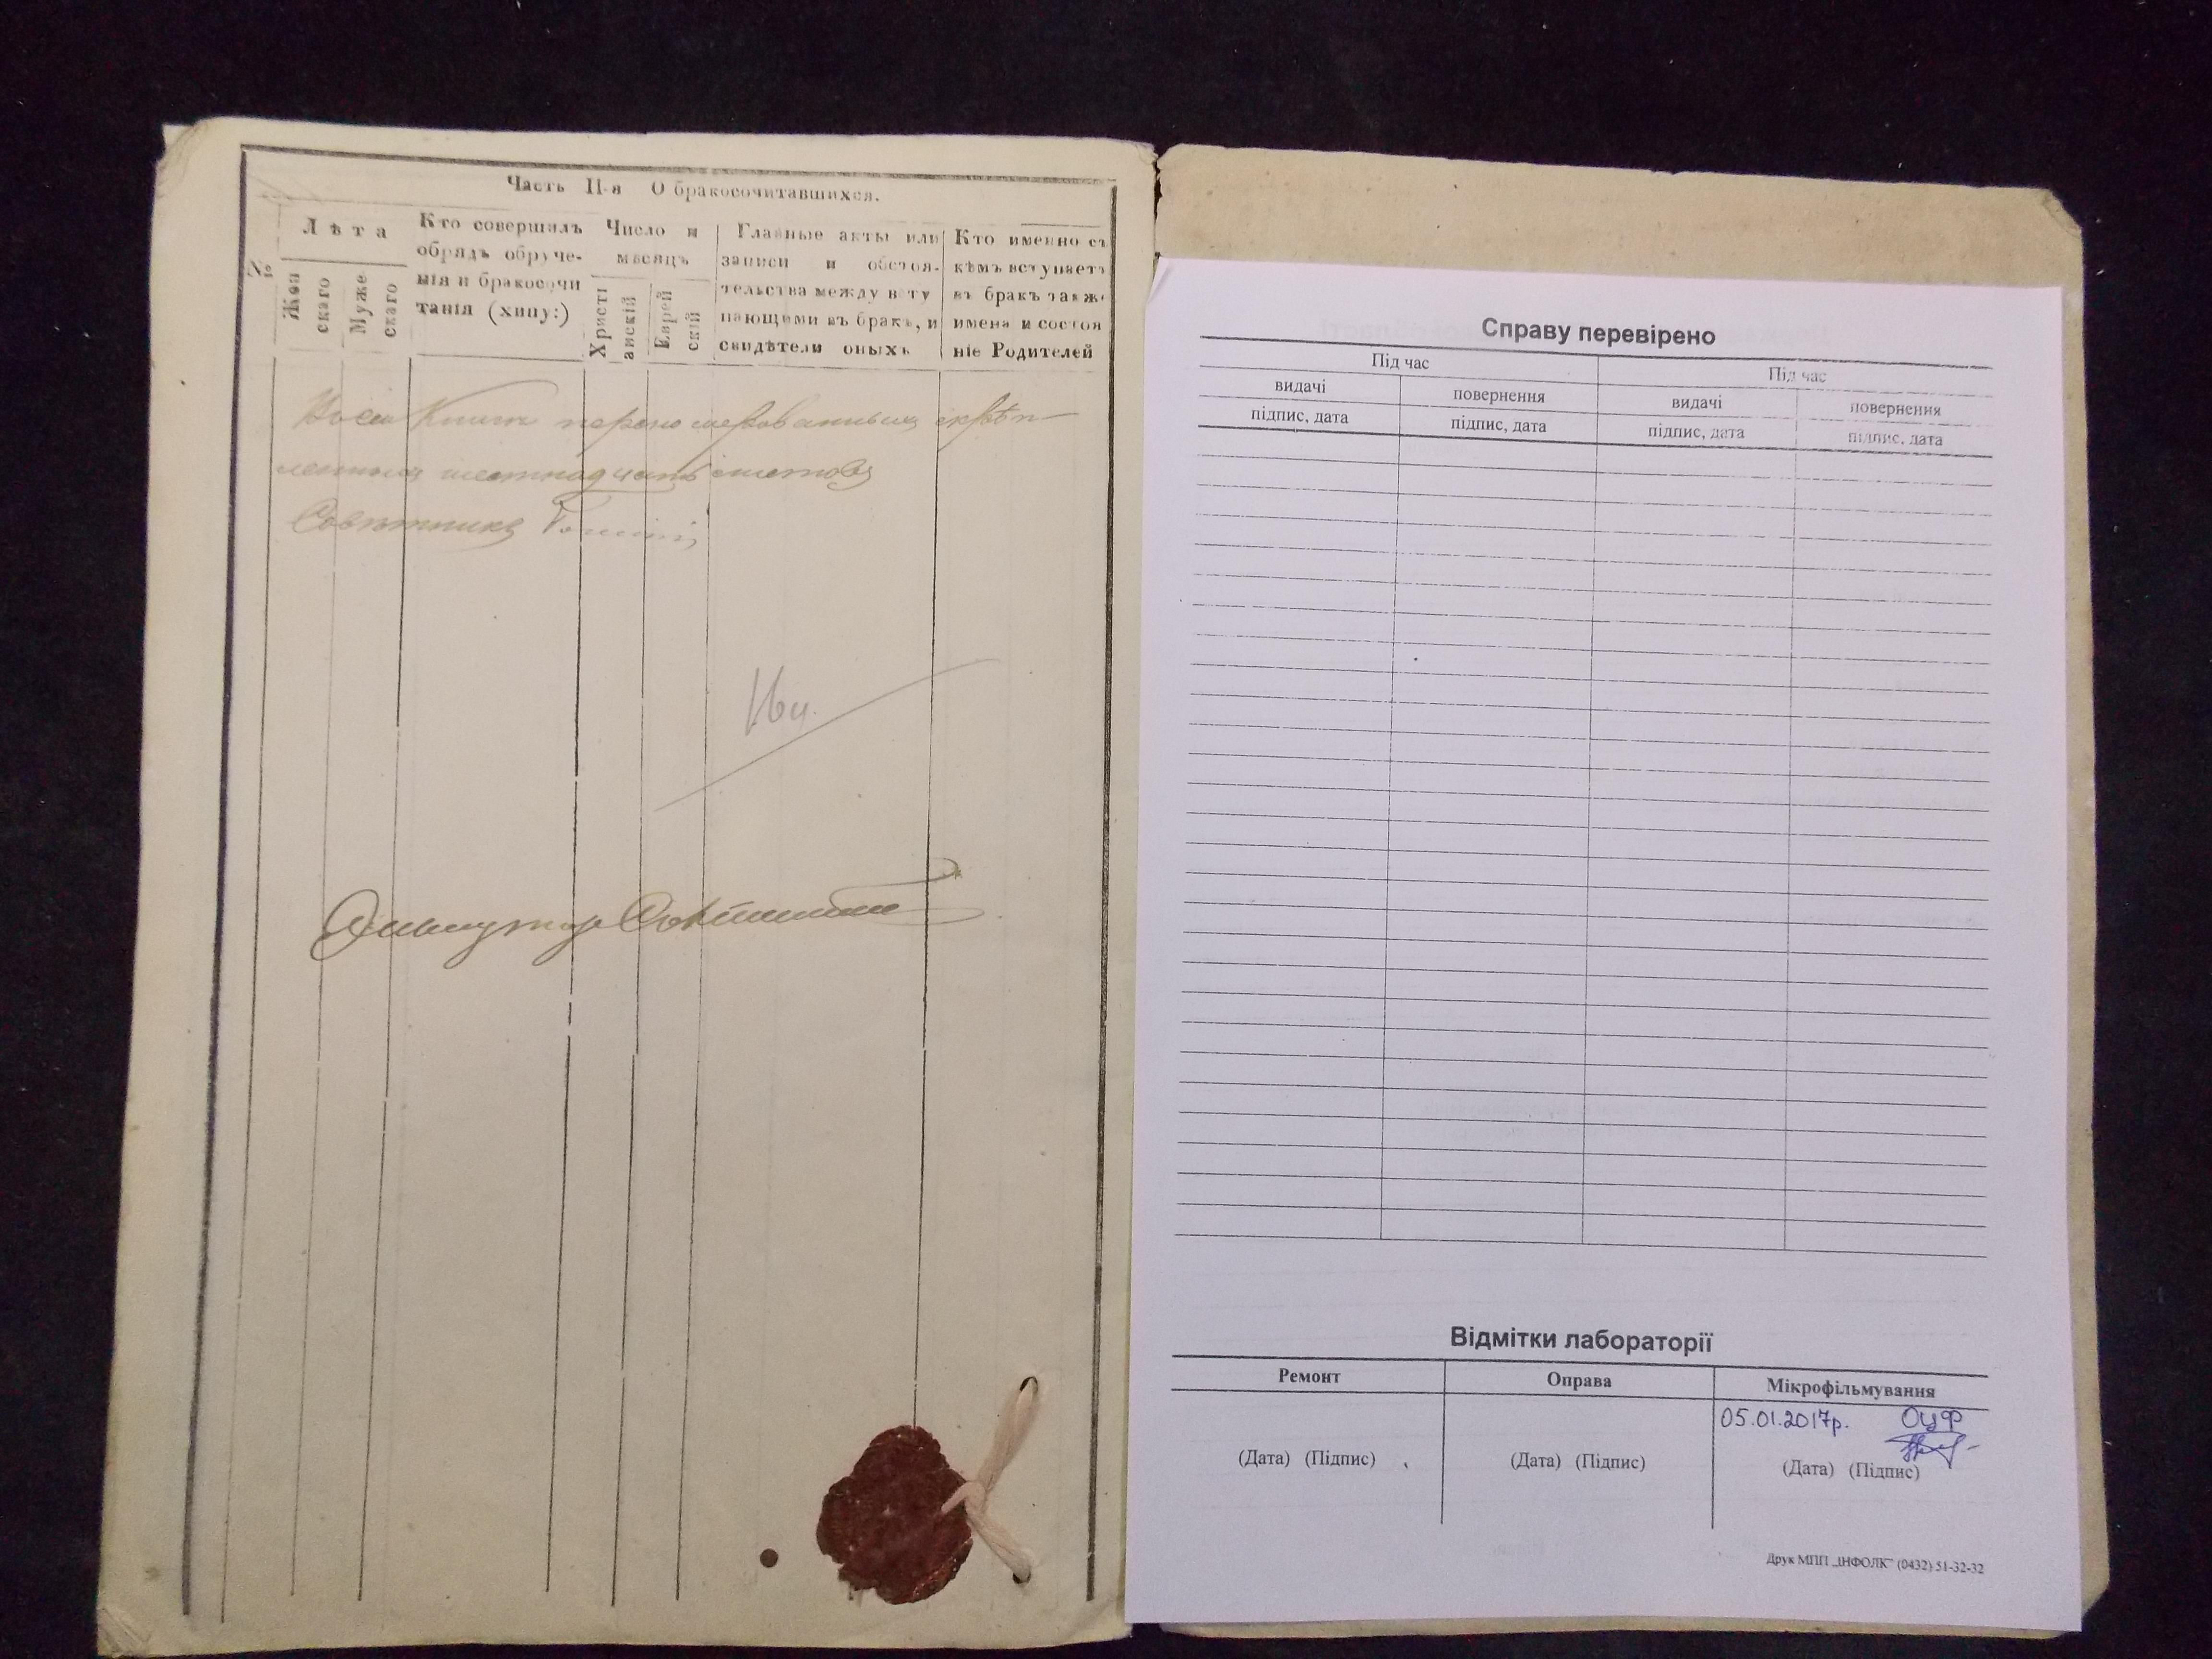 Часть II-я О бракосочитавшихся.
№
Лѣта
Жен
скаго
Муже
скаго
Кто совершилъ
обрядъ обруче-
нія и бракосочи
танія (хипу:)
Число и
месяцъ
Христі
анскій
Еврей
скій
Главные акты или
записи и обстоя-
тельства между всту
пающими въ бракъ, и
свидѣтели оныхъ
Кто именно съ
кѣмъ вступаетъ
въ бракъ также
имена и состоя
ніе Родителей
Книги перенумерованныхъ скрѣп
ленныхъ шестнадцать листовъ
Совѣтникъ
16 ч.
Справу перевірено
Під час
Під час
видачі
повернення
видачі
повернення
підпис, дата
підпис, дата
підпис, дата
підпис, дата
Відмітки лабораторії
Ремонт
Оправа
Мікрофільмування
05.01.2017р. ОЦФ
(Дата) (Підпис)
(Дата) (Підпис)
(Дата) (Підпис)
Друк МПП „ІНФОЛК" (0432) 51-32-32